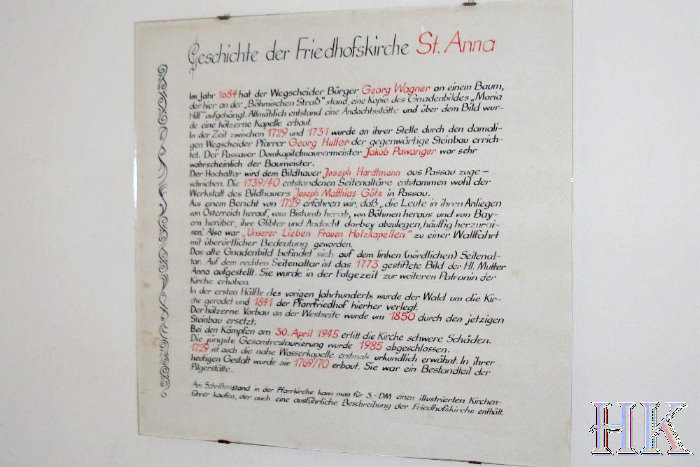 Geschichte der Friedhofskirche St. Anna
Im Jahr 1684 hat der Wegscheider Bürger Georg Wagner an einem Baum,
der hier an der „Böhmischen Straß" stand, eine Kopie des Gnadenbildes „Maria
Hilf" aufgehängt. Allmählich entstand eine Andachtsstätte und über dem Bild wur-
de eine hölzerne Kapelle erbaut.
In der Zeit zwischen 1729 und 1731 wurde an ihrer Stelle durch den damali-
gen Wegscheider Pfarrer Georg Hutter der gegenwärtige Steinbau errich-
tet. Der Passauer Domkapitelmaurermeister Jakob Pawanger war sehr
wahrscheinlich der Baumeister.
Der Hochaltar wird dem Bildhauer Joseph Hardtmann aus Passau zuge-
schrieben. Die 1739/40 entstandenen Seitenaltäre entstammen wohl der
Werkstatt des Bildhauers Joseph Matthias Götz in Passau.
Aus einem Bericht von 1729 erfahren wir, daß „die Leute in ihren Anliegen
von Österreich herauf, vom Bistumb herab, von Böhmen heraus und von Bay-
ern herüber, ihre Glibter und Andacht dorbey abzulegen, häuffig herzurai-
sen." Also war „Unserer Lieben Frauen Holzkapellen" zu einer Wallfahrt
mit überörtlicher Bedeutung geworden.
Das alte Gnadenbild befindet sich auf dem linken (nördlichen) Seitenal-
tar. Auf dem rechten Seitenaltar ist das 1773 gestiftete Bild der Hl. Mutter
Anna aufgestellt. Sie wurde in der Folgezeit zur weiteren Patronin der
Kirche erhoben.
In der ersten Hälfte des vorigen Jahrhunderts wurde der Wald um die Kir-
che gerodet und 1841 der Pfarrfriedhof hierher verlegt.
Der hölzerne Vorbau an der Westseite wurde um 1850 durch den jetzigen
Steinbau ersetzt.
Bei den Kämpfen am 30. April 1945 erlitt die Kirche schwere Schäden.
Die jüngste Gesamtrestaurierung wurde 1985 abgeschlossen.
1729 ist auch die nahe Wasserkapelle erstmals urkundlich erwähnt. In ihrer
heutigen Gestalt wurde sie 1769/70 erbaut. Sie war ein Bestandteil der
Pilgerstätte.
Am Schriftenstand in der Pfarrkirche kann man für 3,-DM einen illustrierten Kirchen-
führer kaufen, der auch eine ausführliche Beschreibung der Friedhofskirche enthält.
HK